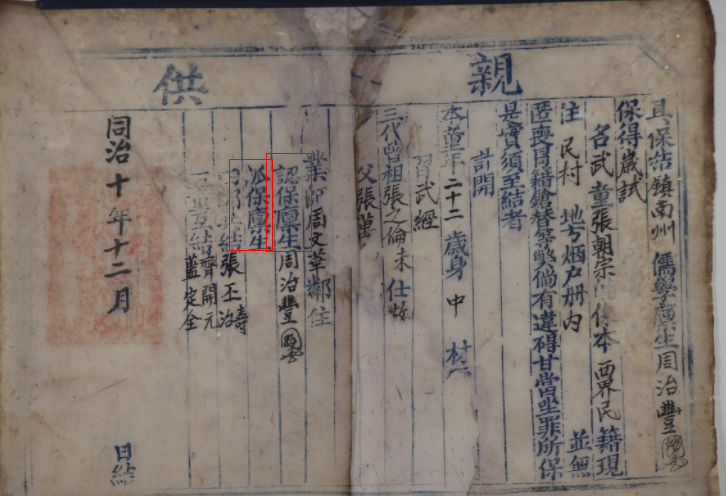 親供
具保結鎮南州儒學廩生周治豐
保得歲試
名武童張朝宗係本西界民籍現
注民村地方烟户册内並無
匿喪冒籍鎗替等弊倘有違碍甘當坐罪所保
是實須至結者
計開
本童年二十二歲身中材
習武經
三代曾祖張之倫未仕故
父張萬
業師周文華鄰佑
認保廩生周治豐
派保廩生
張丕濤
互結齊開元
藍定全
同治十年十二月日結